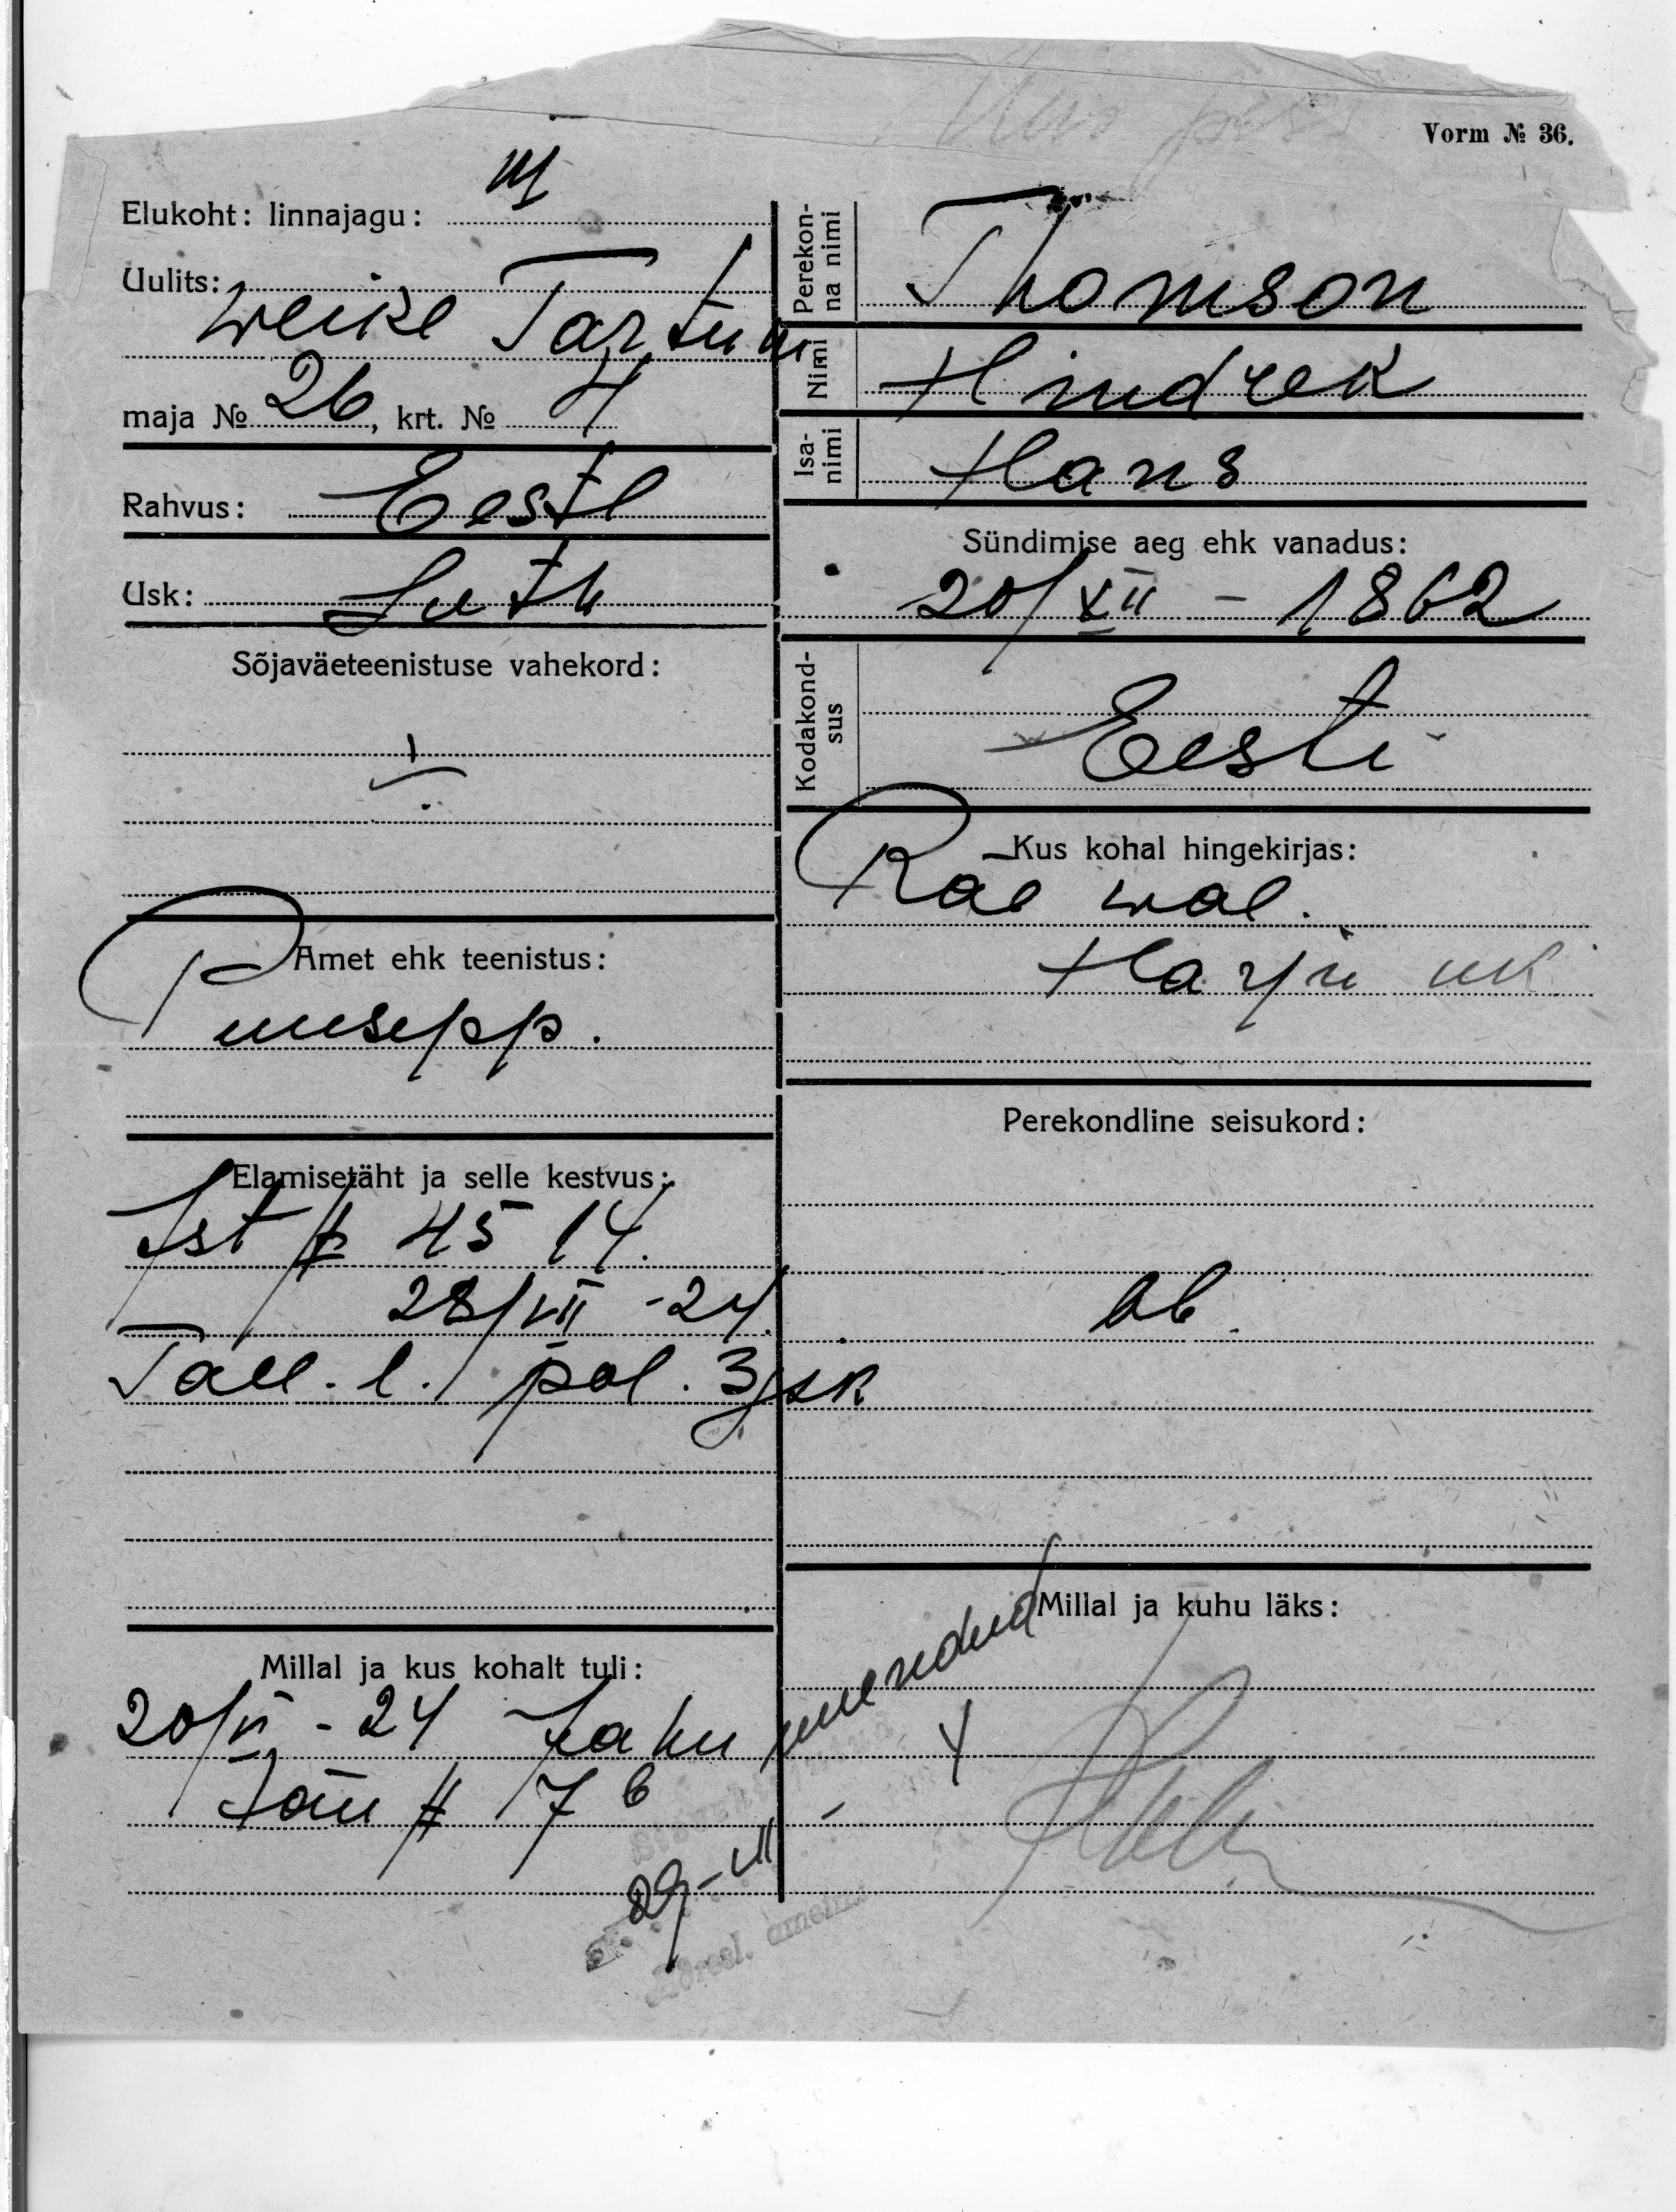 Vorm № 36.
Elukoht: linnajagu: III
Uulits: Weike Tartu m
maja № 26, krt. № 4
Rahvus: Eestl
Usk: Luth
Sõjaväeteenistuse vahekord:
Amet ehk teenistus:
Puusepp.
Elamisetäht ja selle kestvus:
Ist № 45 14.
28/VII -24.
Tall. l. pol. 3 jsk
Millal ja kus kohalt tuli:
20/VI - 24 Jahu
tän № 7 b
29-VII
Adresl. ameti
Perekonna nimi Thomson
Nimi Hindrek
Isanimi Hans
Sündimise aeg ehk vanadus:
20/XII - 1862
Kodakondsus Eesti
Kus kohal hingekirjas:
Rae wal.
Harju mk
Perekondline seisukord:
ab.
Millal ja kuhu läks:
uuendud